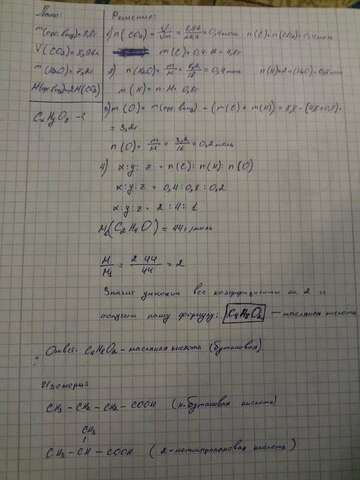 Дано:
m(орг.вещ)=8,8г
V(CO₂)=8,96л
m(H₂O)=7,2г
M(орг.вещ)=2M(CO₂)
CₓHᵧO_z -?
Решение:
1) n(CO₂) = V/Vm = 8,96/22,4 = 0,4 моль n(C)=n(CO₂)=0,4 моль
m(C)=0,4·12=4,8г
2) n(H₂O) = m/M = 7,2/18 = 0,4 моль n(H)=2n(H₂O)=0,8 моль
m(H)=n·M=0,8г
3) m(O) = m(орг.вещ) - (m(C)+m(H)) = 8,8-(4,8+0,8)=
= 3,2г
n(O) = m/M = 3,2/16 = 0,2 моль
4) x:y:z = n(C):n(H):n(O)
x:y:z = 0,4:0,8:0,2
x:y:z = 2:4:1
M₁(C₂H₄O) = 44 г/моль
M/M₁ = 2·44/44 = 2
Значит умножим все коэффициенты на 2 и
получим нашу формулу: C₄H₈O₂ — масляная кислота
Ответ: C₄H₈O₂ - масляная кислота (бутановая)
Изомеры:
CH₃-CH₂-CH₂-COOH (н-бутановая кислота)
CH₃
CH₃-CH-COOH (2-метилпропановая кислота)